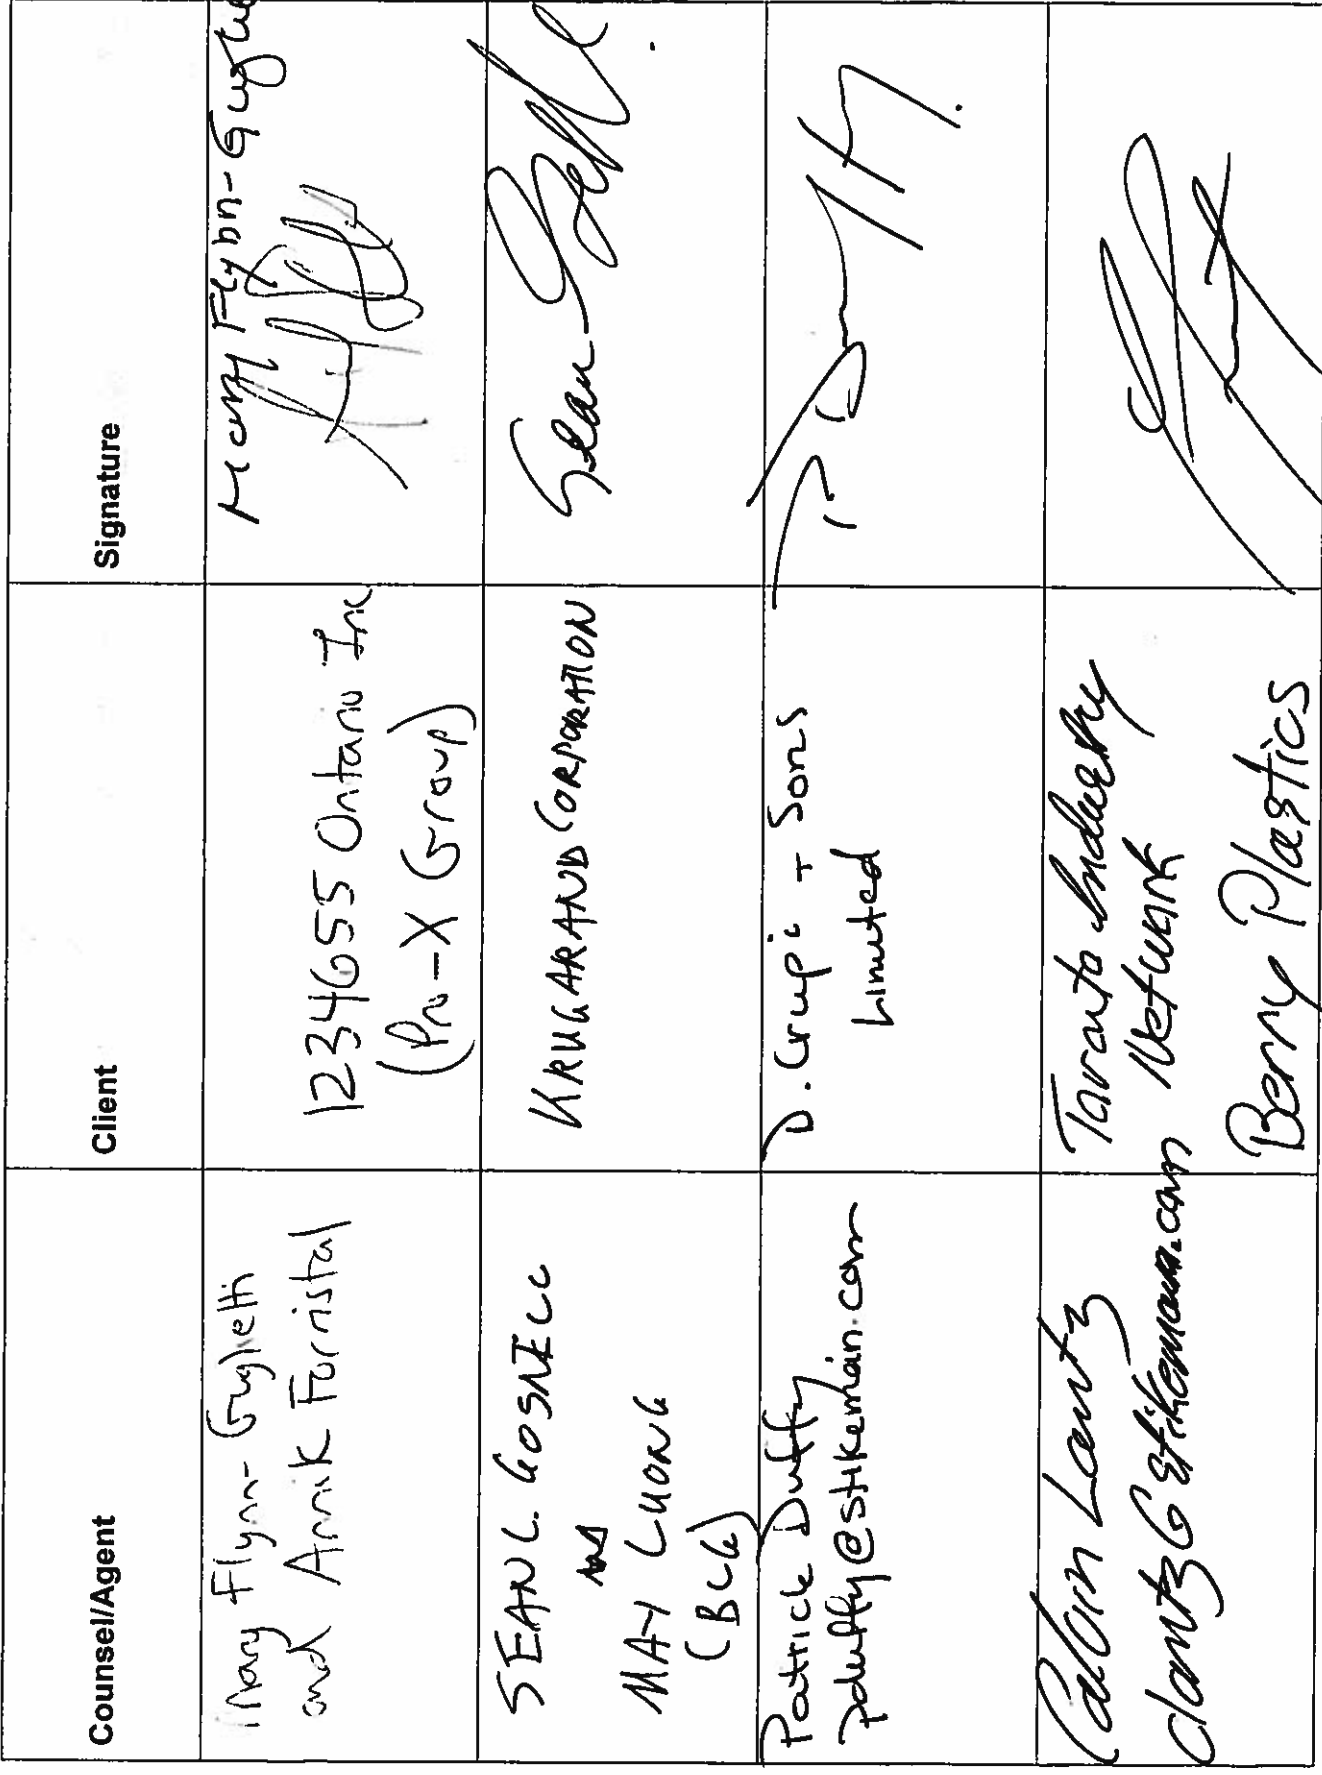 Counsel/Agent
Client
Signature
Mary Flynn-Guglietti
and Annik Forristal
1234655 Ontario Inc
(Pro-X Group)
Mary Flynn-Gugli
SEAN L. GOSNELL
and
MAY LUONG
(BLG)
KRUGARAND CORPORATION
Sean
Patrick Duffy
pduffy@stikeman.com
D. Crupi + Sons
Limited
Calvin Lantz
clantz@stikeman.com
Toronto Industry
Network
Berry Plastics